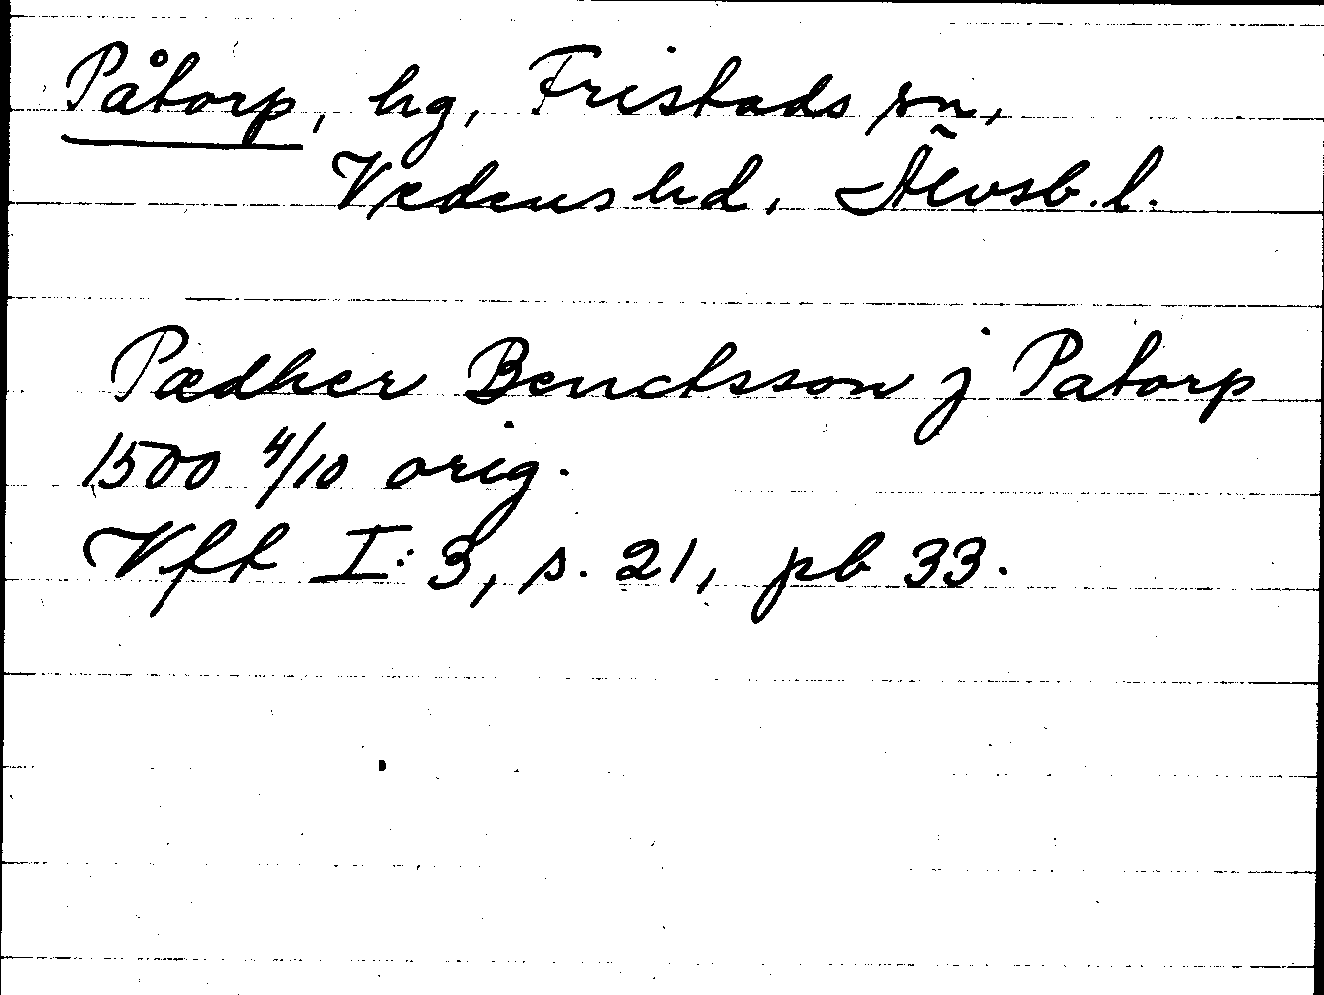 Påtorp, hg, Fristads sn,
Vedens hd, Älvsb. l.
Pædher Benctsson j Patorp
1500 4/10 orig.
Vfft I:3, s. 21, pb 33.